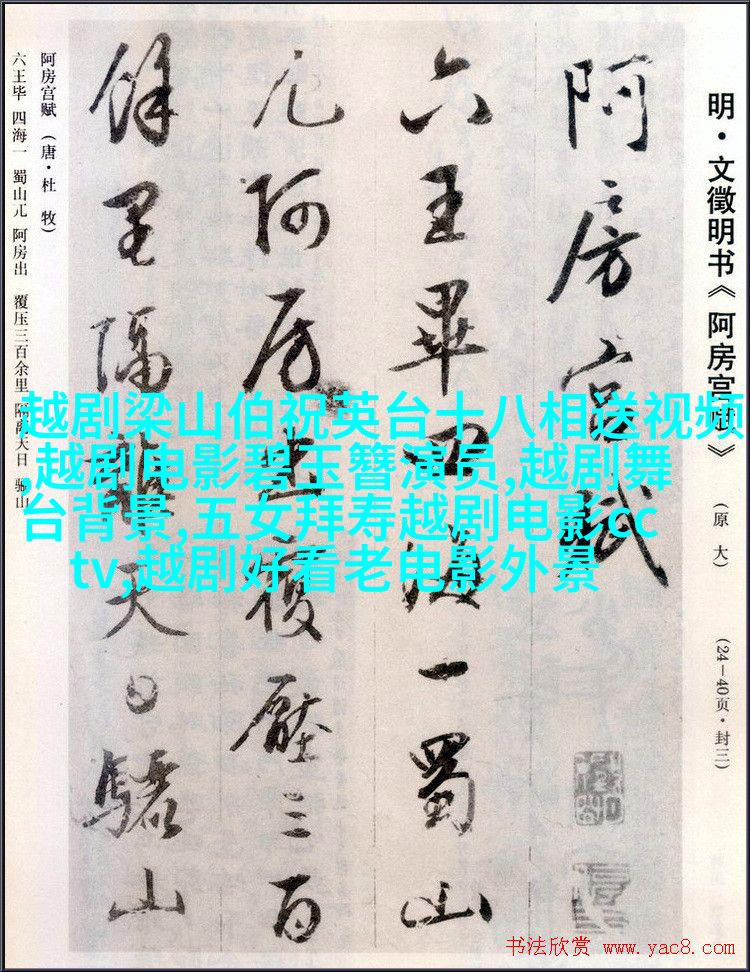 明·文徵明书《阿房宫赋》 (原大) (24—40页·封三)
阿房宫賦
六王畢四海一蜀山
兀阿房出復壓三百
餘里隔離天日驪山
阿房宫赋（唐·杜 牧）
六王毕 四海一 蜀山兀 阿房出 覆压三百余里 隔离天日 骊山
越剧梁山伯祝英台十八相送视频
,越剧电影碧玉簪演员,越剧舞
台背景,五女拜寿越剧电影cc
tv,越剧好看老电影外景
书法欣赏 www.yac8.com